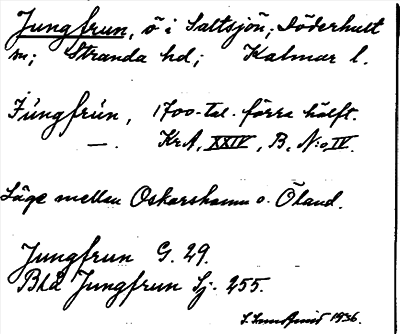 Jungfrun, ö i Saltsjön; Döderhult
sn; Stranda hd; Kalmar l.
Jungfrun, 1700-tal. förra hälft.
— KrA, XXIV, B, N:o IV.
Läge mellan Oskarshamn o. Öland.
Jungfrun G. 29.
Blå Jungfrun Sj. 255.
1936.